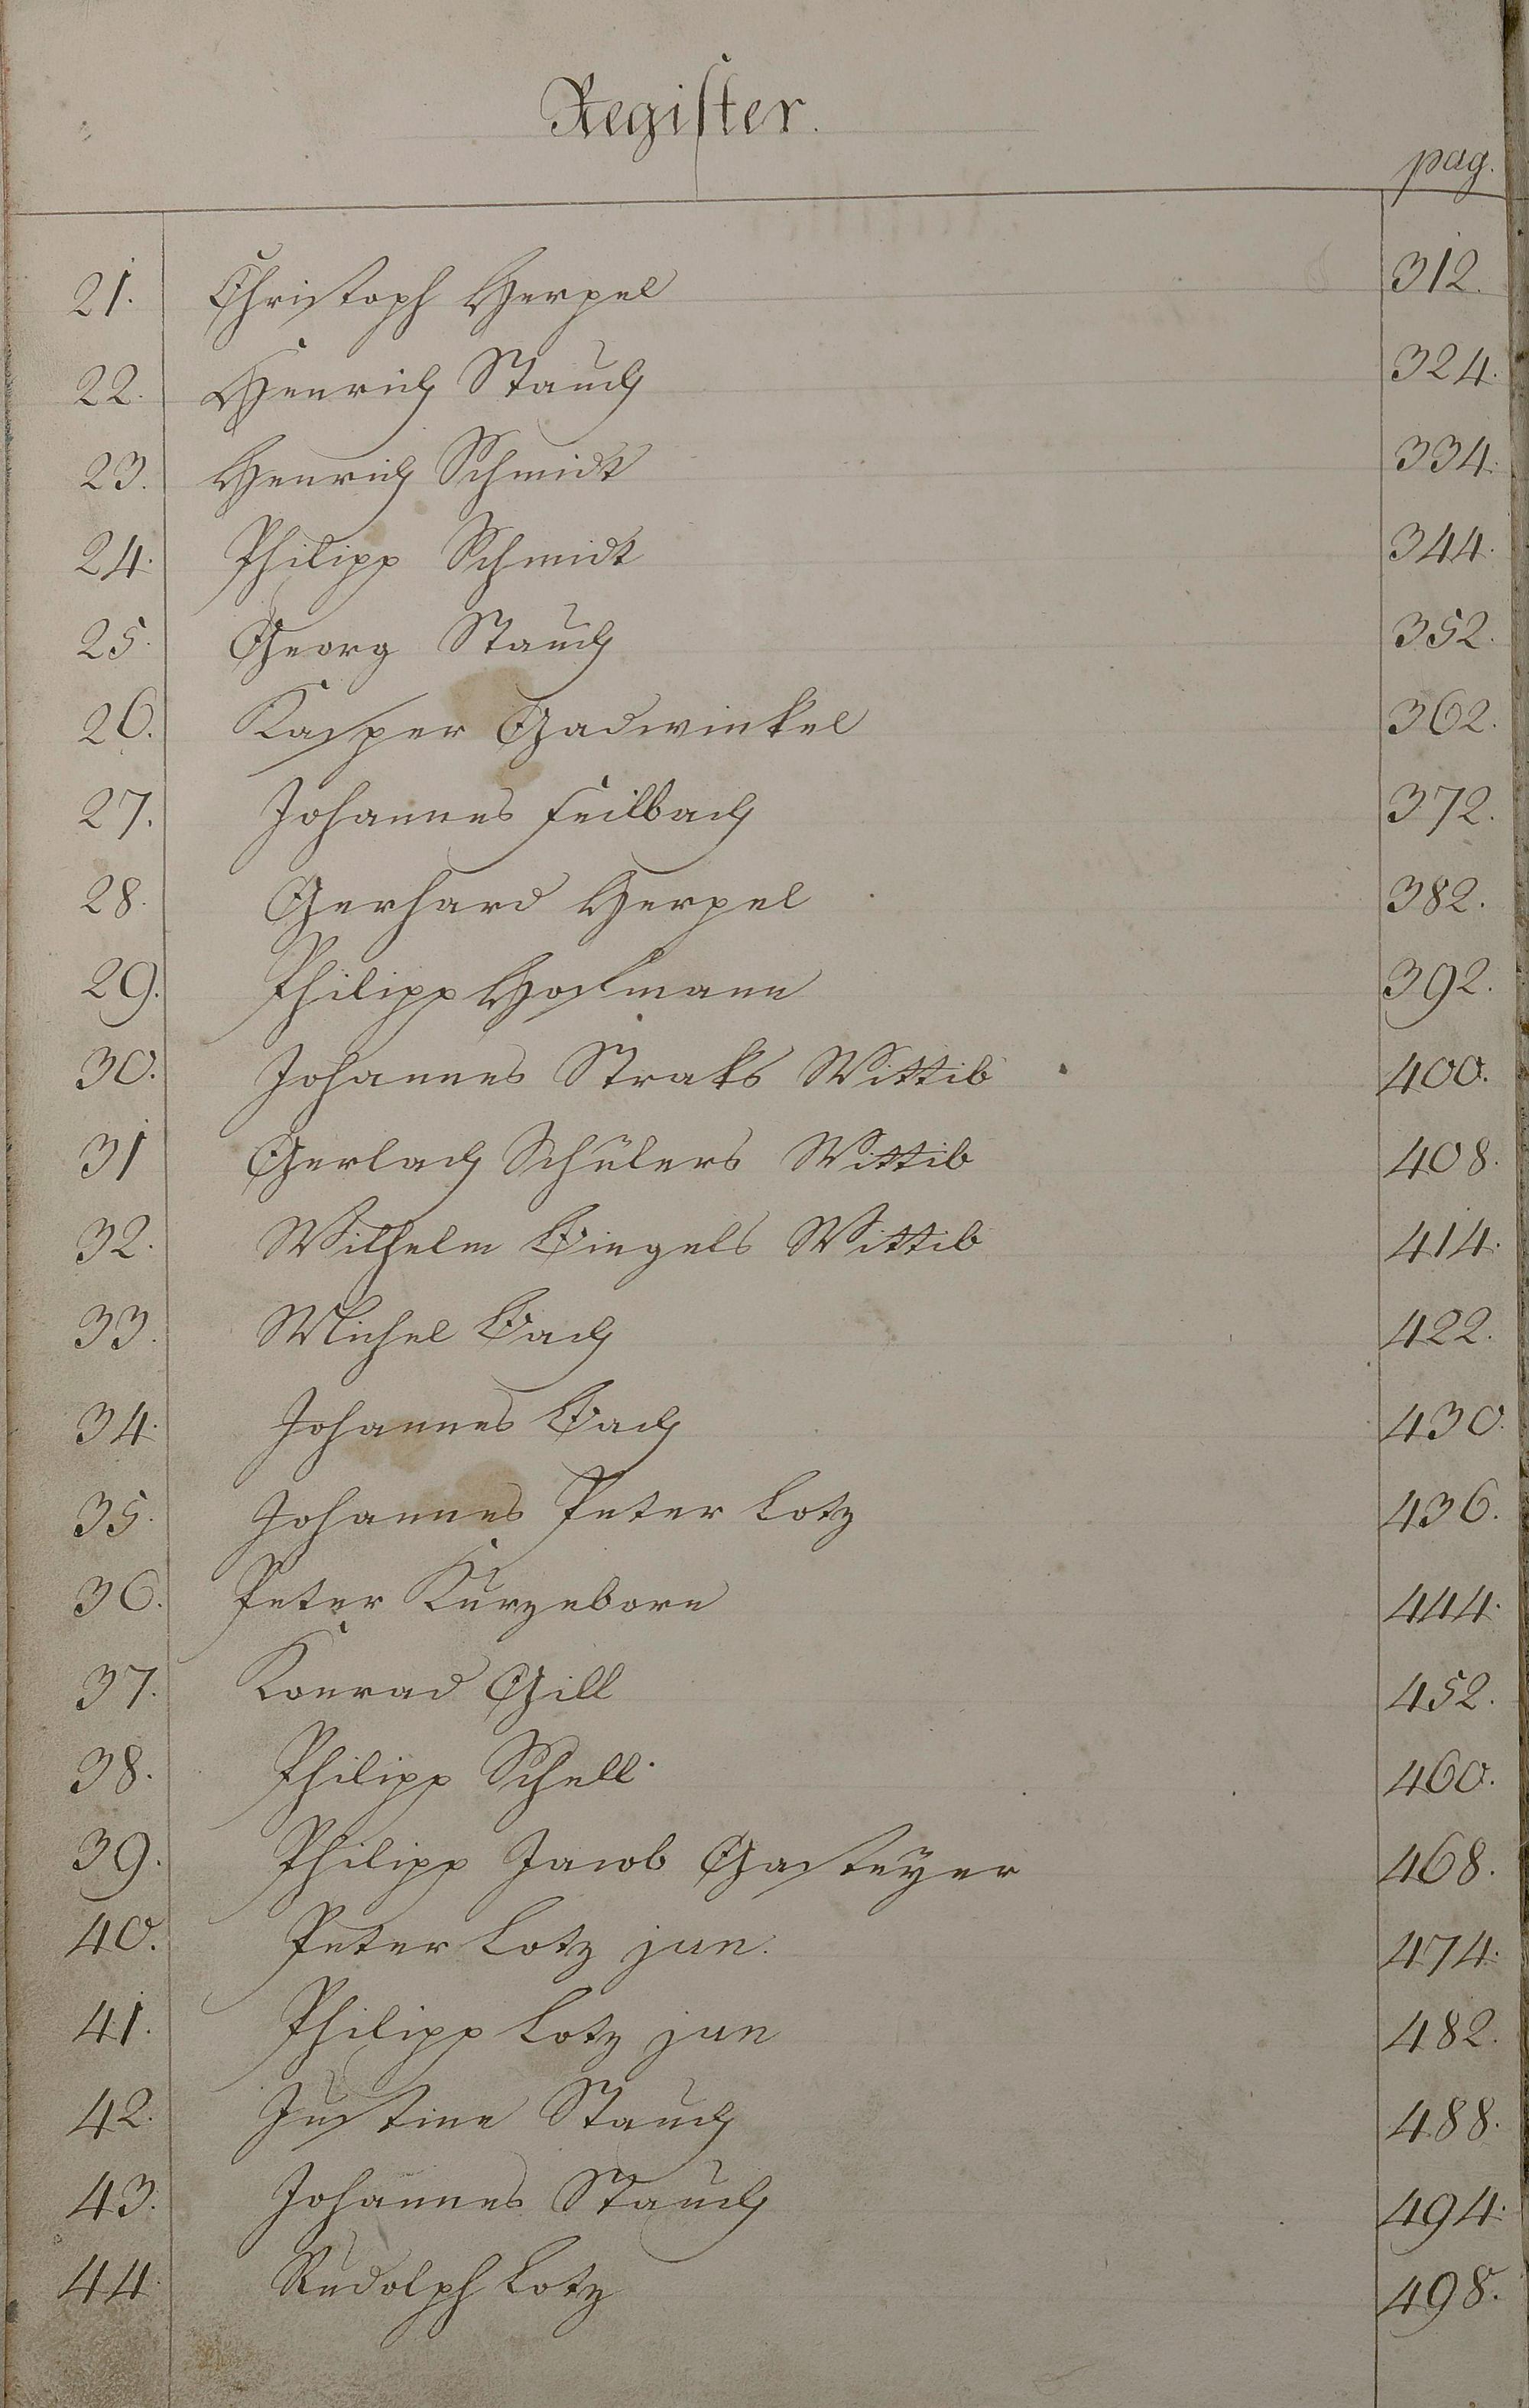 Register.
pag.
21. Christoph Herpel 312.
22. Henrich Stauch 324.
23. Henrich Schmidt 334.
24. Philipp Schmidt 344.
25. Georg Stauch 352.
26. Kasper Gadwinkel 362.
27. Johannes Feilbach 372.
28. Gerhard Herpel 382.
29. Philipp Hofmann 392.
30. Johannes Straks Wittib 400.
31 Gerlach Schülers Wittib 408.
32. Wilhelm Bingels Wittib 414.
33. Michel Bach 422.
34. Johannes Bach 430.
35. Johannes Peter Lotz 436.
36. Peter Kurzeborn 444.
37. Konrad Gill 452.
38. Philipp Schell 460.
39. Philipp Jacob Gasteyer 468.
40. Peter Lotz jun. 474.
41. Philipp Lotz jun 482.
42. Justine Stauch 488.
43. Johannes Stauch 494.
44. Rudolph Lotz 498.